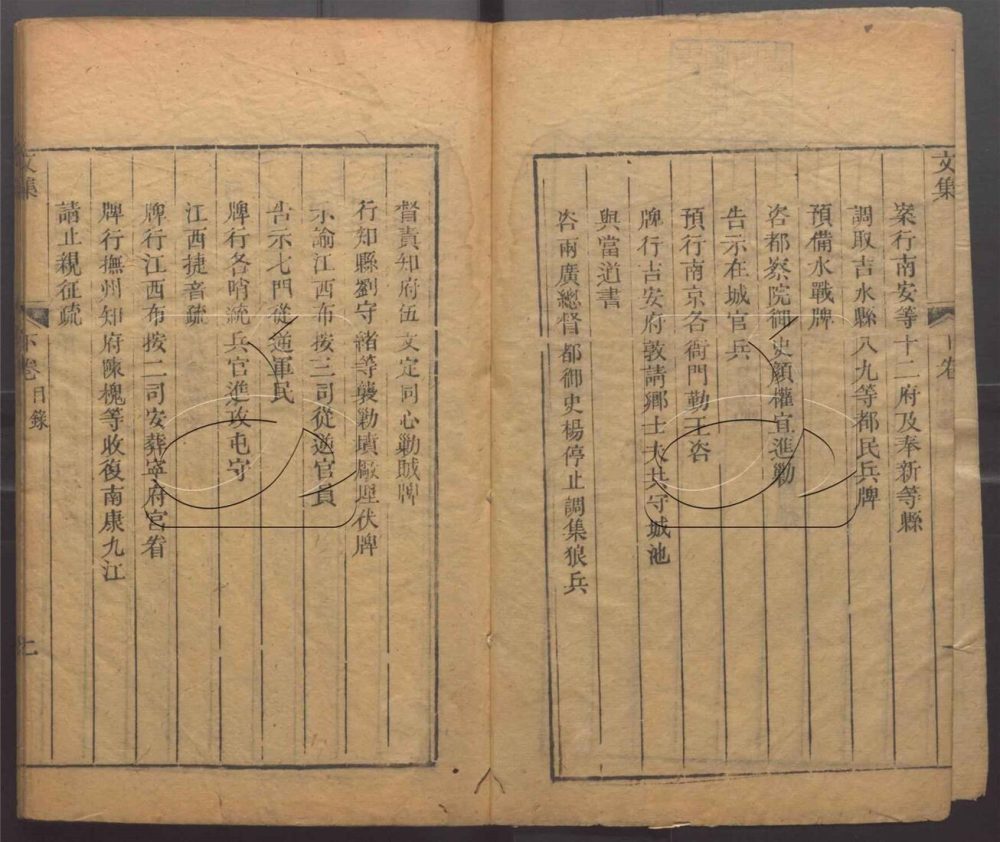 文集
案行南安等十二府及奉新等縣
調取吉水縣八九等都民兵牌
預備水戰牌
咨都察院御史顏權宜進勦
告示在城官兵
預行南京各衙門勤王咨
牌行吉安府敦請鄉士夫共守城池
與當道書
咨兩廣總督都御史楊停止調集狼兵
督責知府伍文定同心勦賊牌
行知縣劉守緒等襲勦墳廠埋伏牌
示諭江西布按三司從逆官員
告示七門從逆軍民
牌行各哨統兵官進攻屯守
江西捷音疏
牌行江西布按二司安葬寧府宮眷
牌行撫州知府陳槐等收復南康九江
請止親征疏
文集
卷
目錄
七